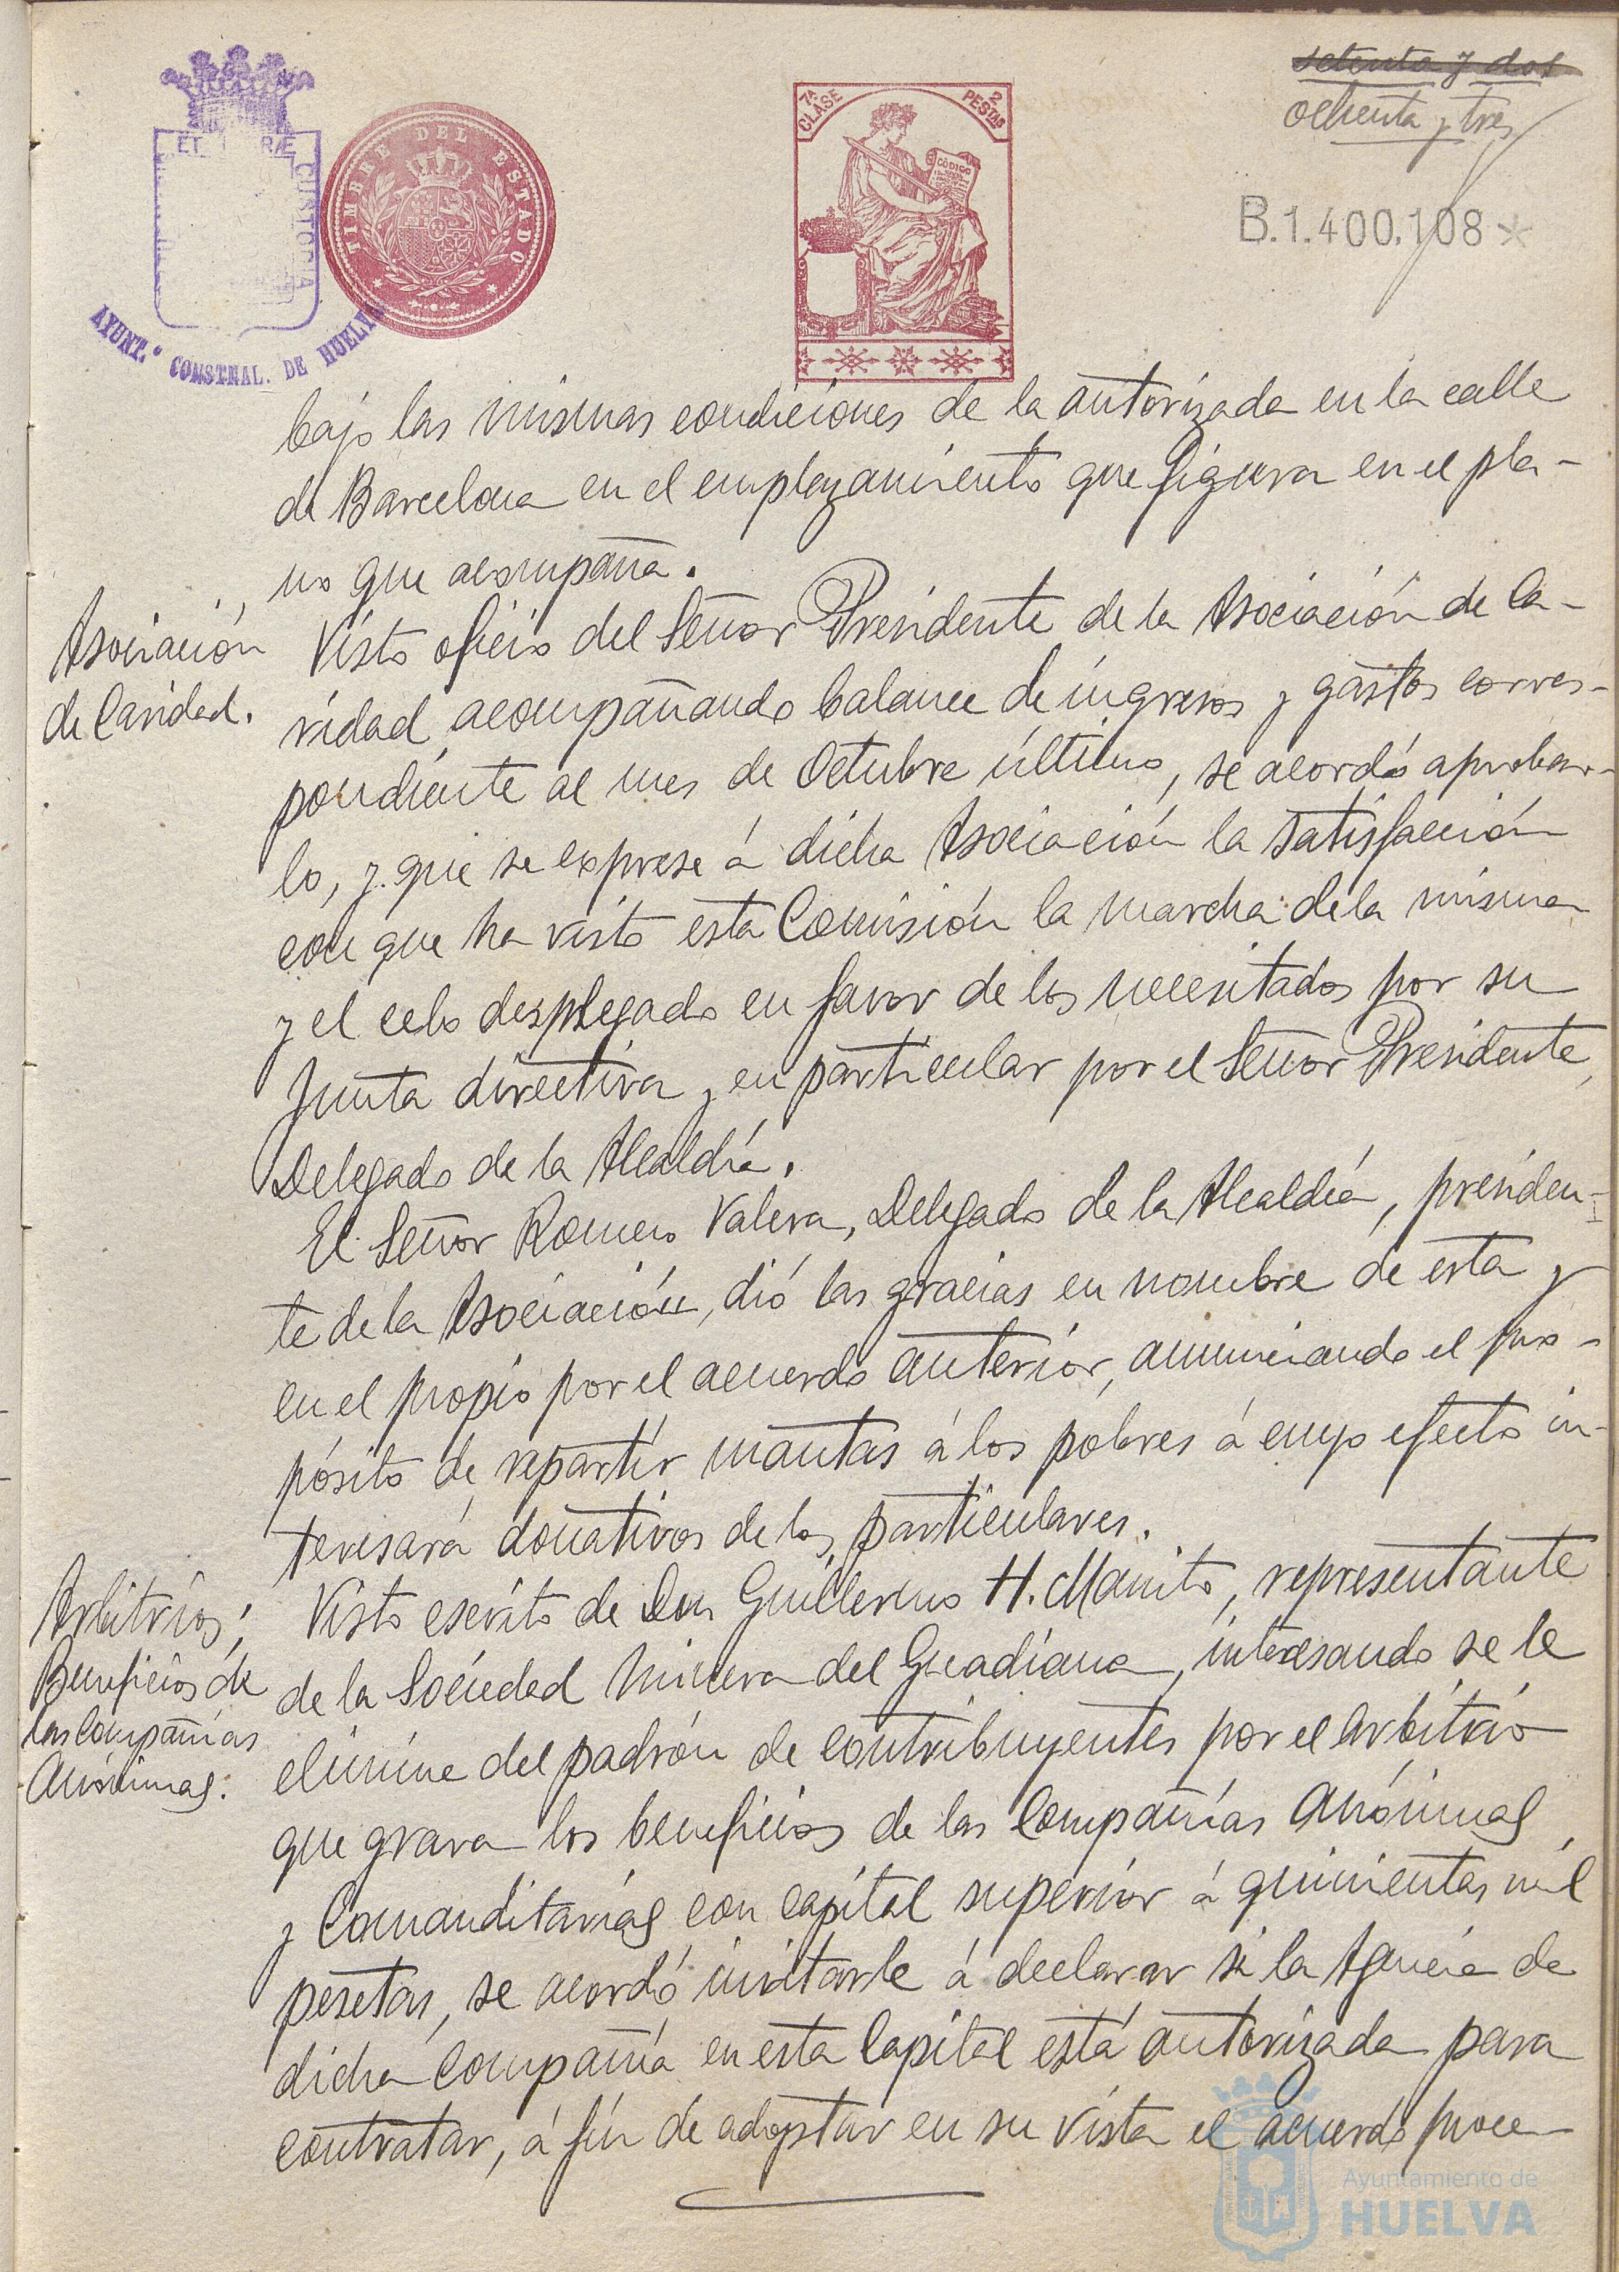 setenta y dos
ochenta y tres
ET RÆ CUSTODIA
AYUNT.º CONSTNAL. DE HUELVA
TIMBRE DEL ESTADO
7ª CLASE
2 PESTAS
CÓDIGO
B.1.400.108*
bajo las mismas condiciones de la autorizada en la calle
de Barcelona en el emplazamiento que figura en el pla-
no que acompaña.
Asociación
de Caridad.
Visto oficio del Señor Presidente de la Asociación de Ca-
ridad acompañando balance de ingresos y gastos corres-
pondiente al mes de Octubre último, se acordó aprobar-
lo, y que se exprese á dicha Asociación la satisfacción
con que ha visto esta Comisión la marcha de la misma
y el celo desplegado en favor de los necesitados por su
Junta directiva y en particular por el Señor Presidente,
Delegado de la Alcaldía.
El Señor Romero Valera, Delegado de la Alcaldía, presiden-
te de la Asociación, dió las gracias en nombre de esta y
en el propio por el acuerdo anterior, anunciando el pro-
pósito de repartir mantas á los pobres á cuyo efecto in-
teresará donativos de los particulares.
Arbitrios;
Beneficios de
las Compañías
Anónimas.
Visto escrito de Don Guillermo H. Manito, representante
de la Sociedad Minera del Guadiana, interesando se le
elimine del padrón de contribuyentes por el arbitrio
que grava los beneficios de las Compañías Anónimas
y Comanditarias con capital superior á quinientas mil
pesetas, se acordó invitarle á declarar si la Agencia de
dicha Compañía en esta Capital está autorizada para
contratar, á fin de adoptar en su vista el acuerdo proce-
Ayuntamiento de
HUELVA